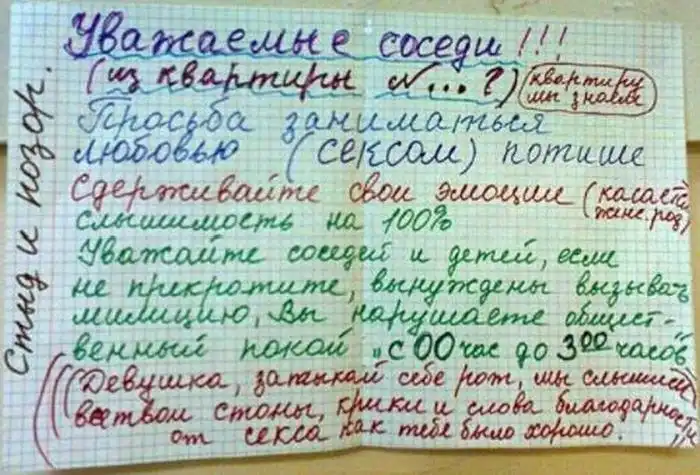 Уважаемые соседи!!!
(из квартиры №...?)
квартиру
мы знаем
Просьба заниматься
любовью (сексом) потише
Сдерживайте свои эмоции (касается
женс. род)
слышимость на 100%
Уважайте соседей и детей, если
не прекратите, вынуждены вызывать
милицию, Вы нарушаете общест-
венный покой „с 00 час до 3 00 часов"
((Девушка, затыкай себе рот, мы слышим
все твои стоны, крики и слова благодарности
от секса как тебе было хорошо.))
Стыд и позор.